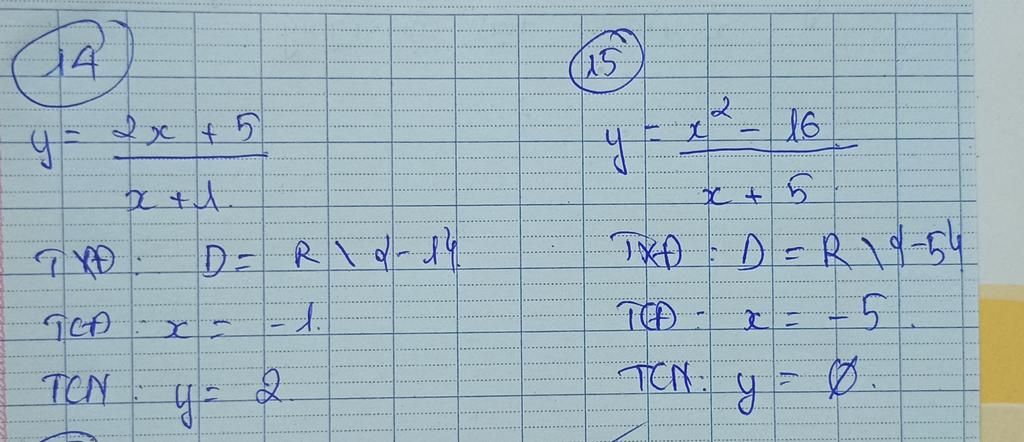 14
y = 2x + 5 / x + 1.
TXĐ : D = R \ {-1}
TCĐ : x = -1.
TCN : y = 2
15
y = x² - 16 / x + 5.
TXĐ : D = R \ {-5}
TCĐ : x = -5.
TCN : y = Ø.